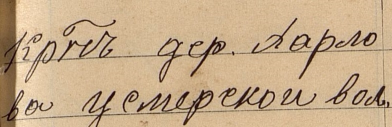 Крнъ дер. Харло
ва Усмерской вол.